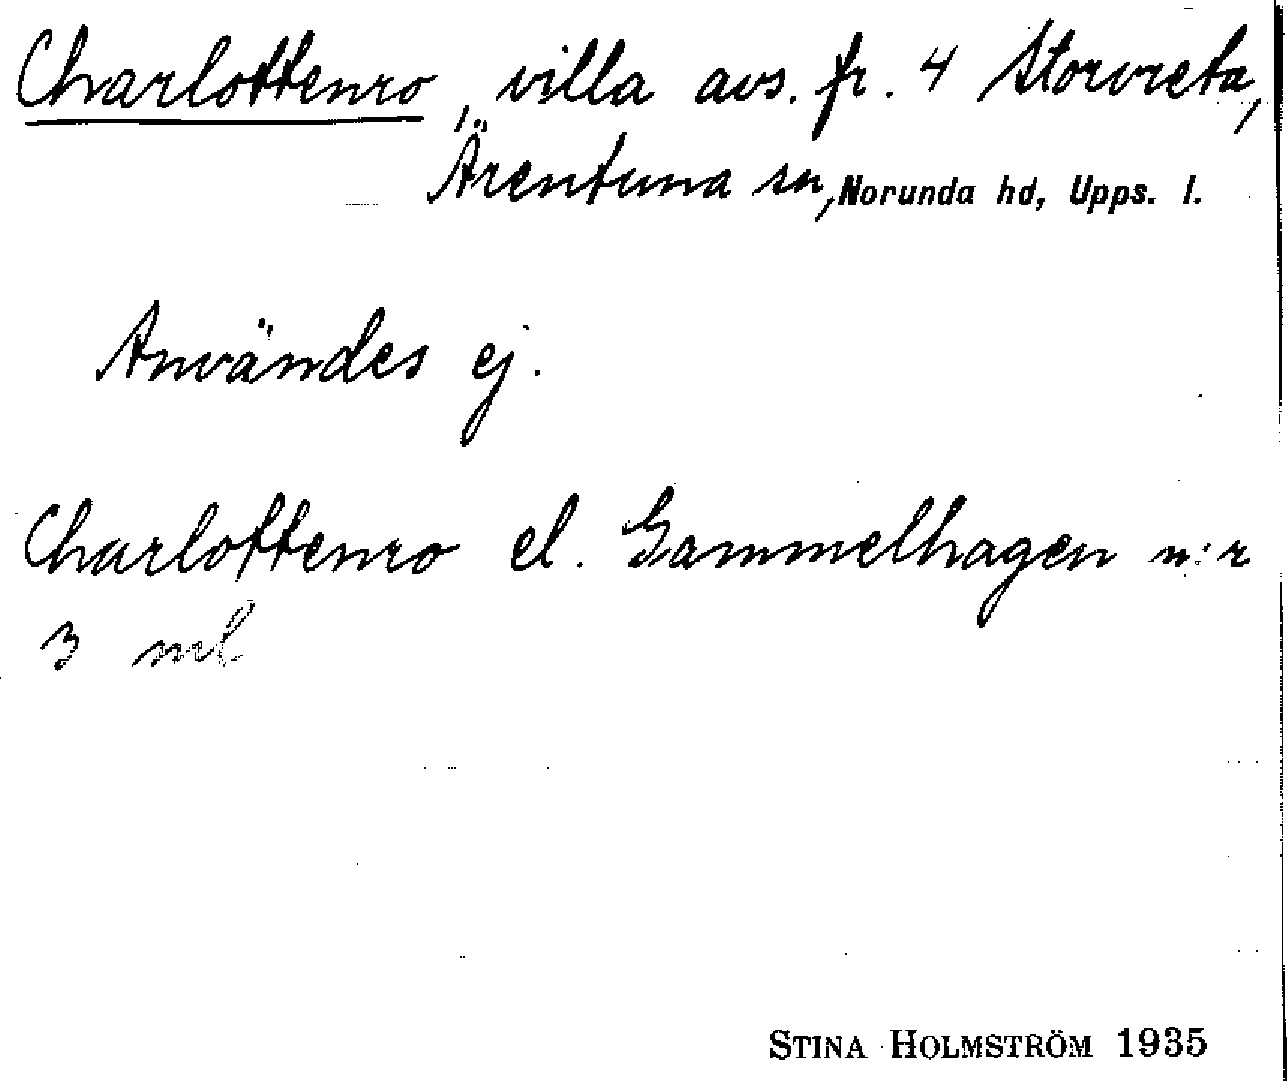 Charlottenro, villa avs. fr. 4 Storvreta,
Ärentuna sn, Norunda hd, Upps. l.
Användes ej.
Charlottenro el. Gammelhagen n:r
3 jrl
STINA HOLMSTRÖM 1935